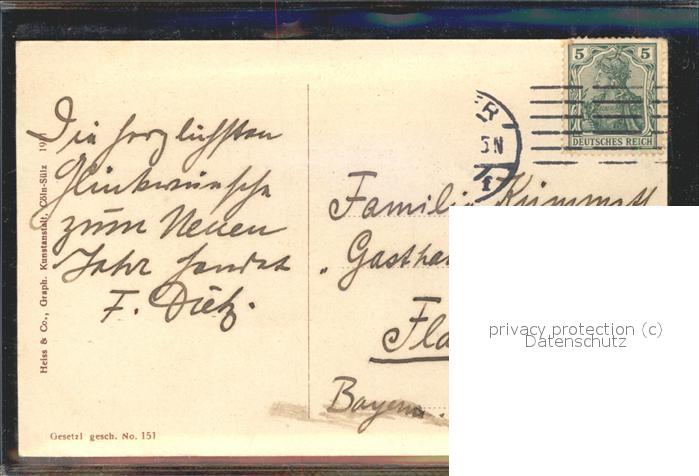 Die herzlichsten
Glückwünsche
zum Neuen
Jahr sendet
F. Dietz.
Heiss & Co., Graph. Kunstanstalt, Cöln-Sülz 19
Gesetzl gesch. No. 151
5 5
DEUTSCHES REICH
ER
5N
1
Familie Kümmett
„Gastha
Fla
Bayern.
privacy protection (c)
Datenschutz